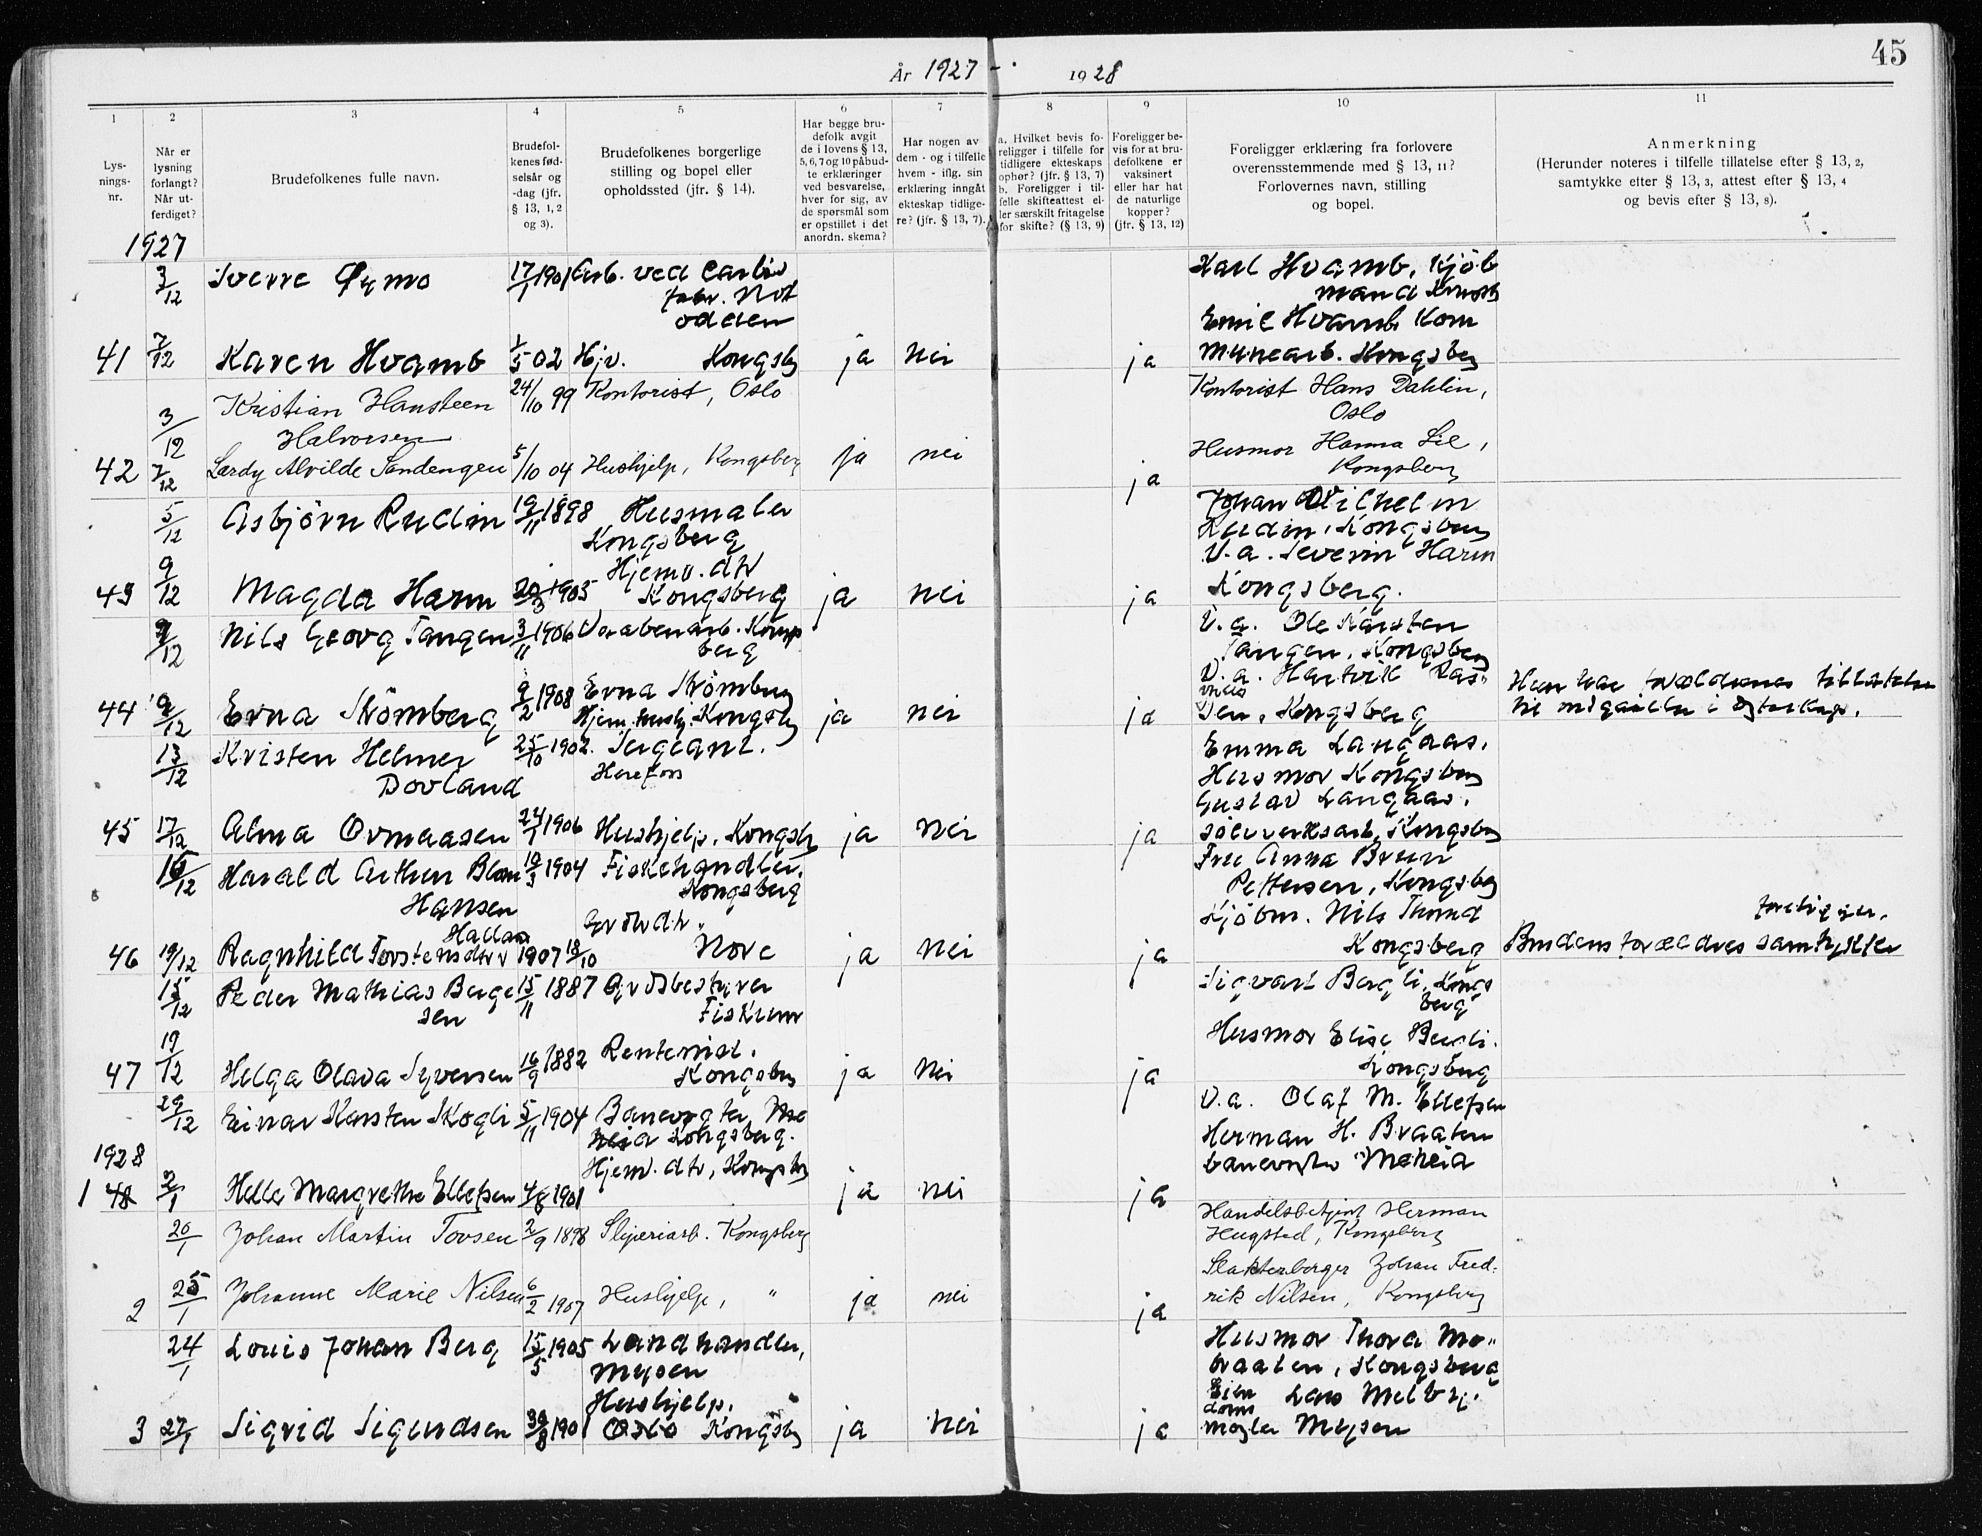 45
År 1927 - 1928
1 2 3 4 5 6 7 8 9 10 11
Lys-
nings-
nr.
Når er
lysning
forlangt?
Når ut-
ferdiget?
Brudefolkenes fulle navn.
Brudefol-
kenes fød-
selsår og
-dag (jfr.
§ 13, 1, 2
og 3).
Brudefolkenes borgerlige
stilling og bopel eller
opholdssted (jfr. § 14).
Har begge bru-
defolk avgit
de i lovens § 13,
5, 6, 7 og 10 påbud-
te erklæringer
ved besvarelse,
hver for sig, av
de spørsmål som
er opstillet i det
anordn. skema?
Har nogen av
dem - og i tilfelle
hvem - iflg. sin
erklæring inngåt
ekteskap tidlige-
re? (jfr. § 13, 7).
a. Hvilket bevis fo-
religger i tilfelle for
tidligere ekteskaps
ophør? (jfr. § 13, 7)
b. Foreligger i til-
felle skifteattest el-
ler særskilt fritagelse
for skifte? (§ 13, 9)
Foreligger be-
vis for at bru-
defolkene er
vaksinert
eller har hat
de naturlige
kopper?
(jfr. § 13, 12)
Foreligger erklæring fra forlovere
overensstemmende med § 13, 11?
Forlovernes navn, stilling
og bopel.
Anmerkning
(Herunder noteres i tilfelle tillatelse efter § 13, 2,
samtykke efter § 13, 3, attest efter § 13, 4
og bevis efter § 13, 8).
1927
3/12 Sverre Øymo 17/1 1901 Arb. ved Carbid
fabr. Not
odden
Karl Hvamb, Kjöb
mand Kongsb
Emil Hvamb Kom
41 7/12 Karen Hvamb 1/5 02 Hjv. Kongsbg ja nei ja munearb. Kongsberg
3/12 Kristian Hansteen 24/10 99 Kontorist, Oslo Kontorist Hans Dahlin,
Halvorsen Oslo
42 7/12 Lardy Alvilde Sandengen 5/10 04 Hushjelp, Kongsberg ja nei ja Husmor Hanna Lie,
Kongsberg
5/12 Asbjörn Rudin 19/11 1898 Husmaler
Kongsberg
Johan Vilhelm
Rudin, Kongsberg
V.a. Severin Harm
49 9/12 Magda Harm 20/3 1905 Hjemv. dtr
Kongsberg ja nei ja Kongsberg.
9/12 Nils Georg Tangen 3/11 1906 Vaabenarb. Kongs
berg
V.a. Ole Karsten
Tangen, Kongsberg
V.a. Hartvik Ras-
44 9/12 Erna Strömberg 9/2 1908 Erna Strømberg
Hjem. hushj. Kongsbg ja nei ja sen, Kongsberg
Hun har forældrenes tillatelse
til indgaaelse i egteskap.
13/12 Kristen Helmer 25/10 1902. Sergeant.
Dovland
Emma Langaas.
Husmor Kongsberg
Gustav Langaas.
45 17/12 Alma Ormaasen 24/1 1906 Hushjelp. Kongsbg ja nei ja sölvverksarb. Kongsberg
16/12 Harald Arthur Blom 19/3 1904 Fiskehandler.
Hansen Kongsberg
Fru Anna Brun
Pettersen, Kongsbg
Kjöbm. Nils Thond
46 19/12 Ragnhild Torstensdtr Hallan 1907 18/10 Grdbr dtr.
Nore ja nei ja Kongsberg
Brudens forældres samtykke
foreligger.
15/12 Peder Mathias Berge 15/11 1887 Grdsbestyrer
sen Fiskum
Sigvart Bergli, Kongs
berg
Husmor Elise Bergli.
47 19/12 Helga Olava Syversen 16/9 1882 Rentenist.
Kongsberg ja nei ja Kongsberg
29/12 Einar Karsten Skogli 5/11 1904 Banevogter, Me
heia Kongsberg.
V.a. Olaf M. Ellefsen
Herman H. Braaten
banevogter Meheia
1928
1 48 2/1 Helle Margrethe Ellefsen 4/8 1901 Hjemv. dtr, Kongsbg ja nei ja
20/1 Johan Martin Tovsen 2/9 1898 Sliperiarb. Kongsberg
Handelsbetjent Herman
Hugsted, Kongsberg
2 25/1 Johanne Marie Nilsen 6/2 1907 Hushjelp, " ja nei ja
Slakterborger Johan Fred-
rik Nilsen, Kongsberg
24/1 Louis Johan Berg 15/5 1905 Landhandler,
Mysen
Husmor Thora Mo-
braaten, Kongsberg
3 27/1 Sigrid Sigurdsen 30/8 1901 Hushjelp.
Oslo Kongsbg ja nei ja
Eien
doms Lars Melby.
mægler Mysen